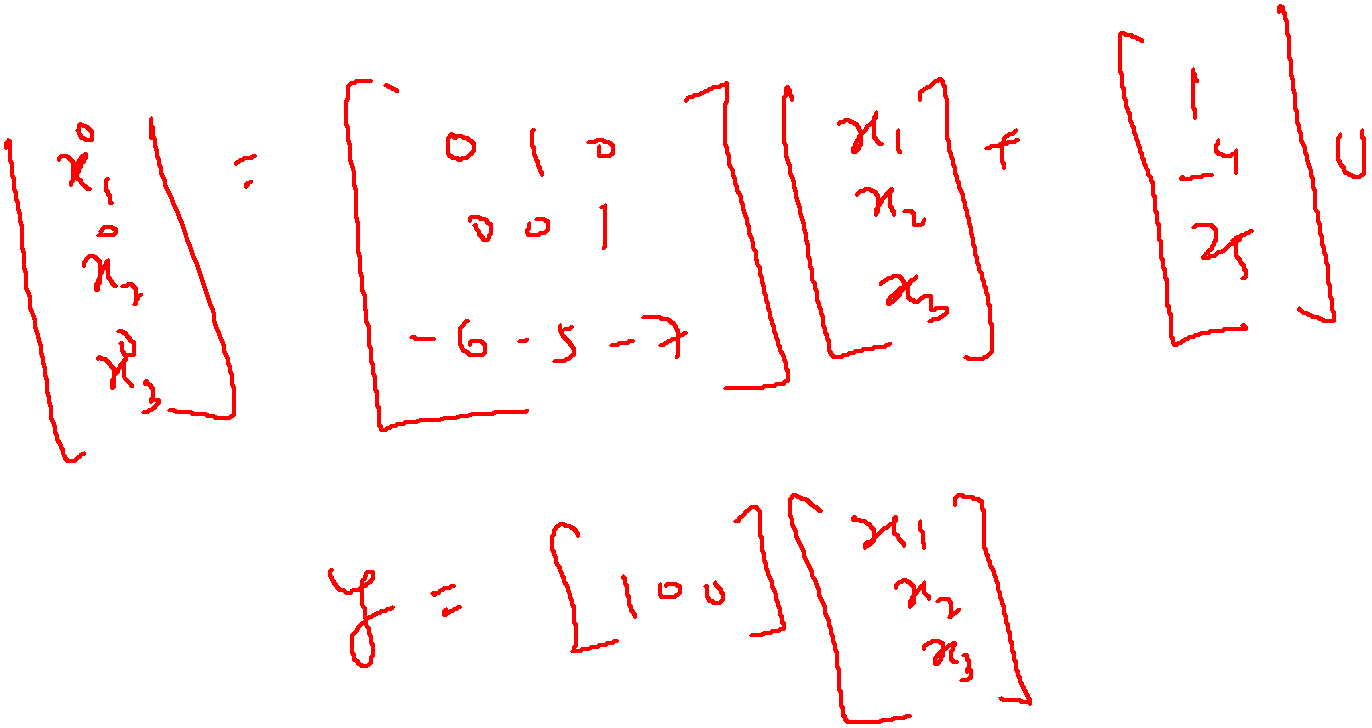 [ẋ₁ ẋ₂ ẋ₃] = [0 1 0; 0 0 1; -6 -5 -7] [x₁ x₂ x₃] + [1 -4 25] U
y = [1 0 0] [x₁ x₂ x₃]